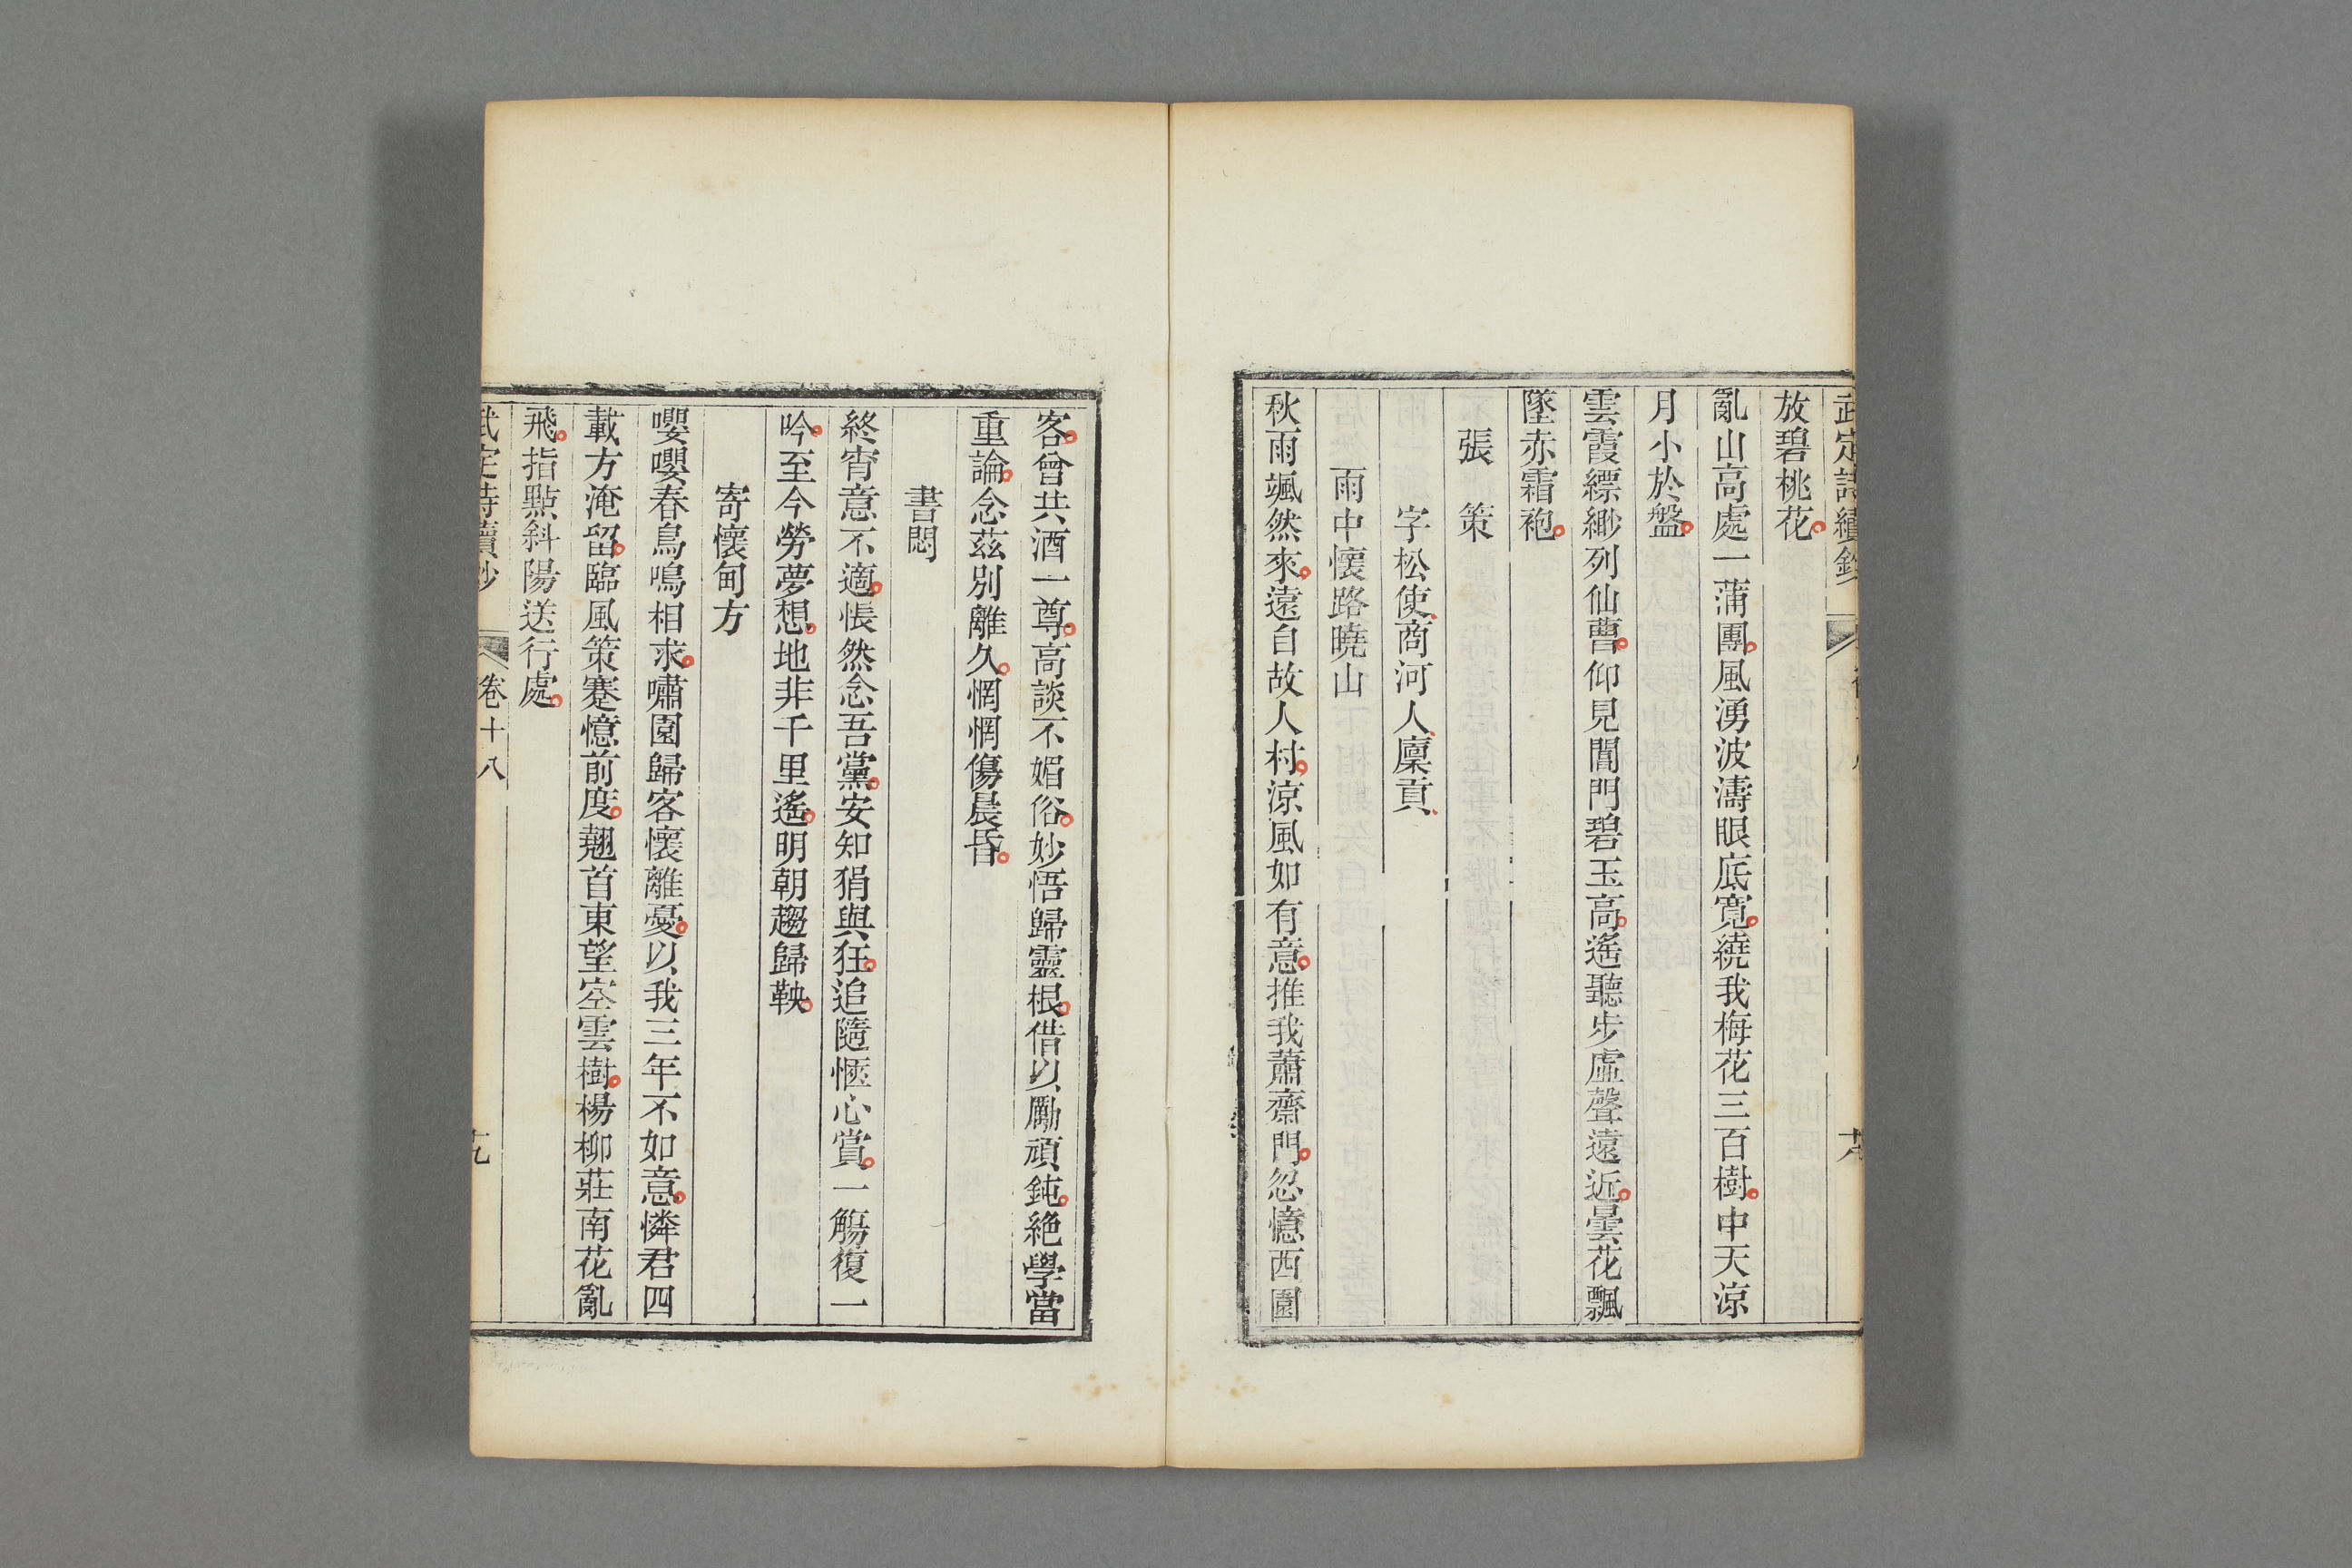 武定詩續鈔
放碧桃花
亂山高處一蒲團風湧波濤眼底寬繞我梅花三百樹中天涼
月小於盤
雲霞縹緲列仙曹仰見閶門碧玉高遙聽步虛聲遠近曇花飄
墜赤霜袍
張策
字松使商河人廩貢
雨中懷路曉山
秋雨颯然來遠自故人村涼風如有意推我蕭齋門忽憶西園
客曾共酒一尊高談不媚俗妙悟歸靈根借以勵頑鈍絕學當
重論念茲別離久惘惘傷晨昏
書悶
終宵意不適悵然念吾黨安知狷與狂追隨愜心賞一觴復一
吟至今勞夢想地非千里遙明朝趨歸鞅
寄懷甸方
嚶嚶春鳥鳴相求嘯園歸客懷離憂以我三年不如意憐君四
載方淹留臨風策蹇憶前度翹首東望空雲樹楊柳莊南花亂
飛指點斜陽送行處
武定詩續鈔 卷十八 十九